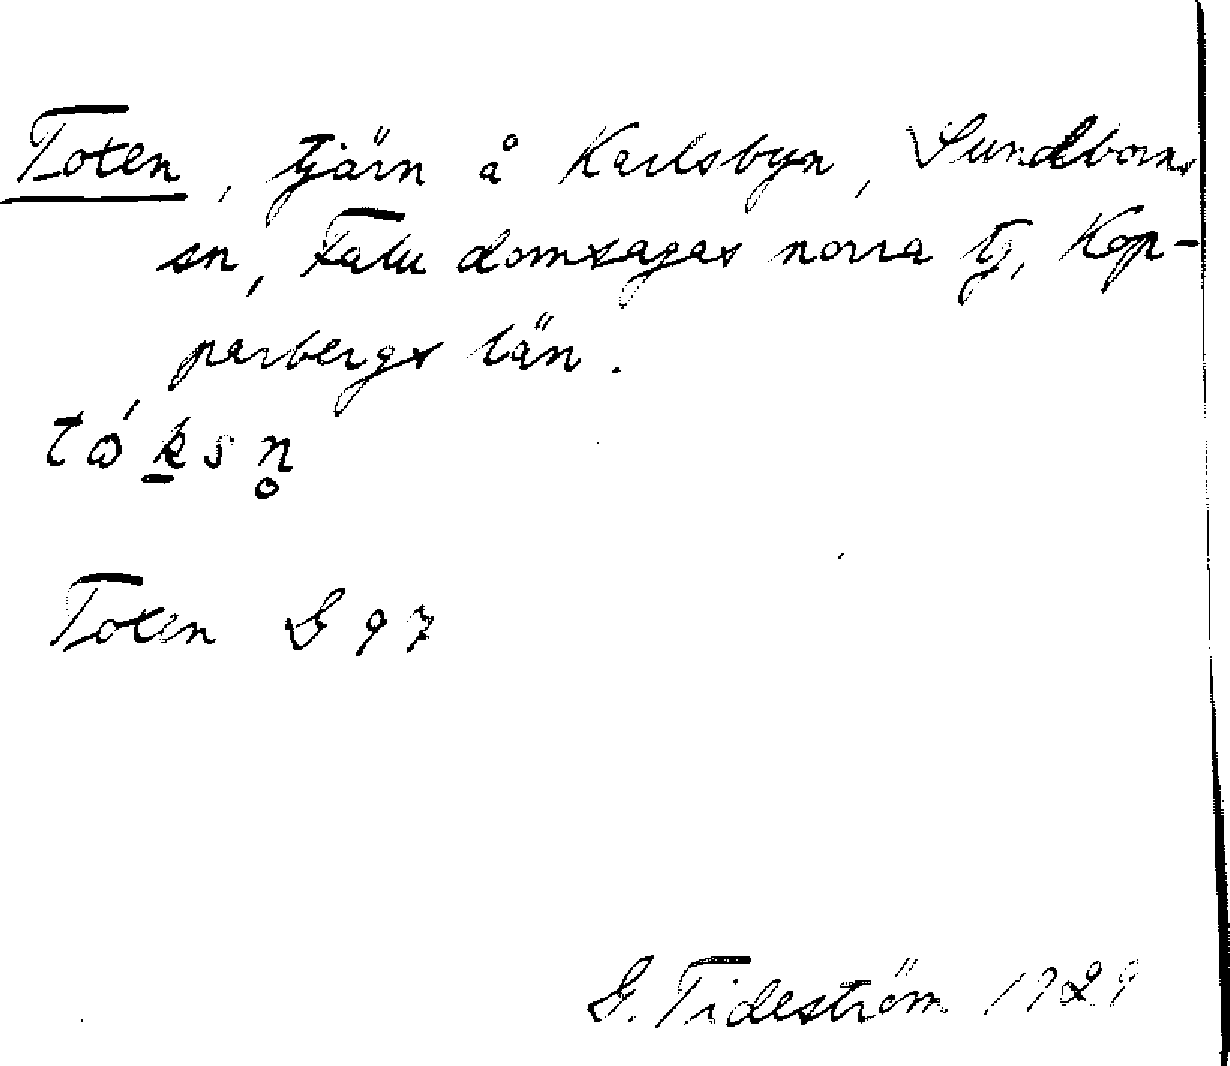 Toxen, tjärn å Karlsbyn, Sundborns
sn, Falu domsagas norra tg, Kop-
parbergs län.
tòksn̥
Toxen G 97
G. Tideström 1929